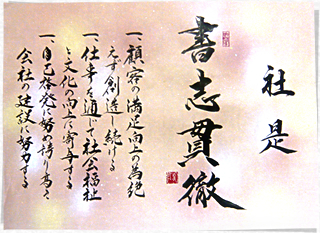 社是
書志貫徹
一、顧客の満足向上の為絶
えず創造し続ける
一、仕事を通じて社会福祉
と文化の向上に寄与する
一、自己啓発に努め誇り高き
会社の建設に努力する